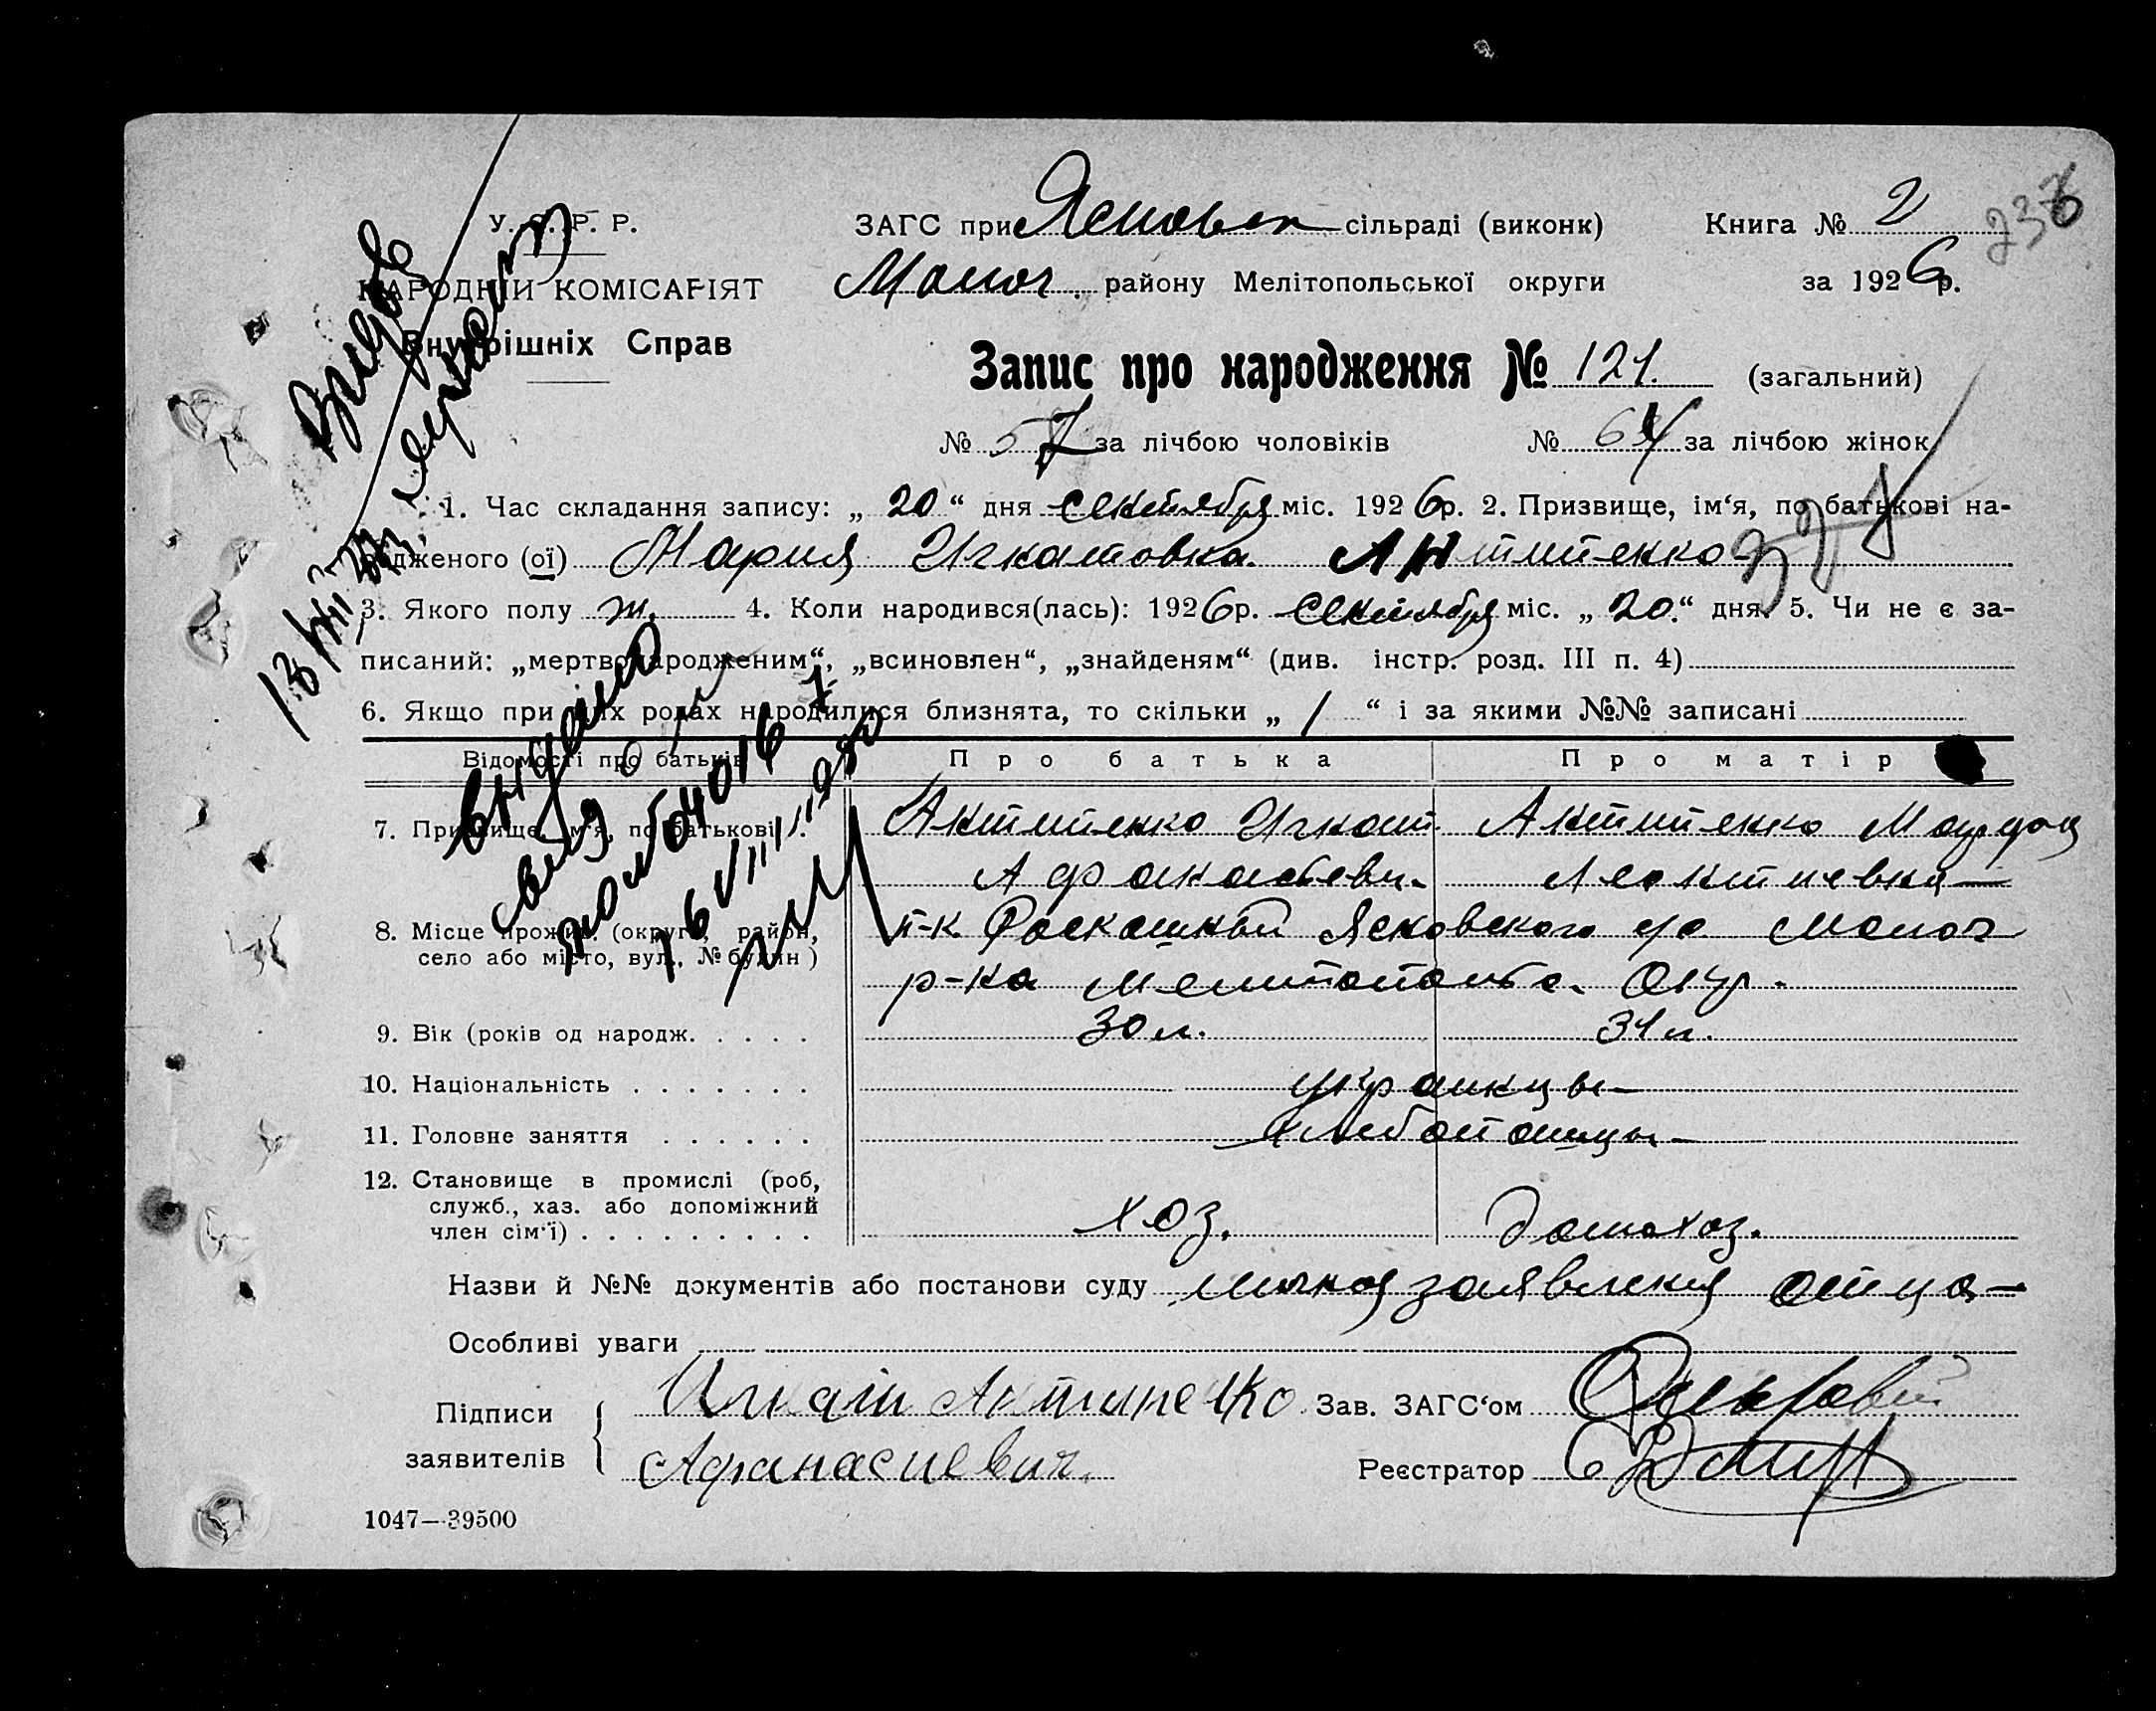 236
У. С. Р. Р.
НАРОДНІЙ КОМІСАРІЯТ
Внутрішніх Справ
ЗАГС при Ясновск сільраді (виконк)
Молоч. району Мелітопольської округи
Книга № 2
за 1926 р.
Запис про народження № 121. (загальний)
№ 57 за лічбою чоловіків № 64 за лічбою жінок
1. Час складання запису: „ 20 “ дня сентября міс. 1926 р. 2. Призвище, ім‘я, по батькові на-
родженого (ої) Мария Игнатовна Антипенко
3. Якого полу ж. 4. Коли народився(лась): 1926 р. сентября міс. „ 20. “ дня. 5. Чи не є за-
писаний: „мертвонародженим“, „всиновлен“, „знайденям“ (див. інстр. розд. III п. 4)
6. Якщо при цих родах народилися близнята, то скільки „ 1 “ і за якими №№ записані
Відомості про батьків Про батька Про матір
7. Призвище, ім‘я, по батькові . Антипенко Игнат Антипенко
Афанасьеви. Леонтиевна
8. Місце прожив. (округа, район,
село або місто, вул., № будин)
п-к. Роскошный Ясновского с/с Молоч
р-ка Мелитопольс. Окр.
9. Вік (років од народж. . . . . 30 л. 31 л.
10. Національність . . . . . . . украинцы
11. Головне заняття . . . . . . хлебопашцы
12. Становище в промислі (роб,
служб., хаз. або допоміжний
член сім‘ї) . . . . . . . . . хоз. домохоз.
Назви й №№ документів або постанови суду личноя заявления отца
Особливі уваги
Підписи
заявителів
Игнат Антипенко
Афанасиевич.
Зав. ЗАГС‘ом
Реєстратор
1047—39500